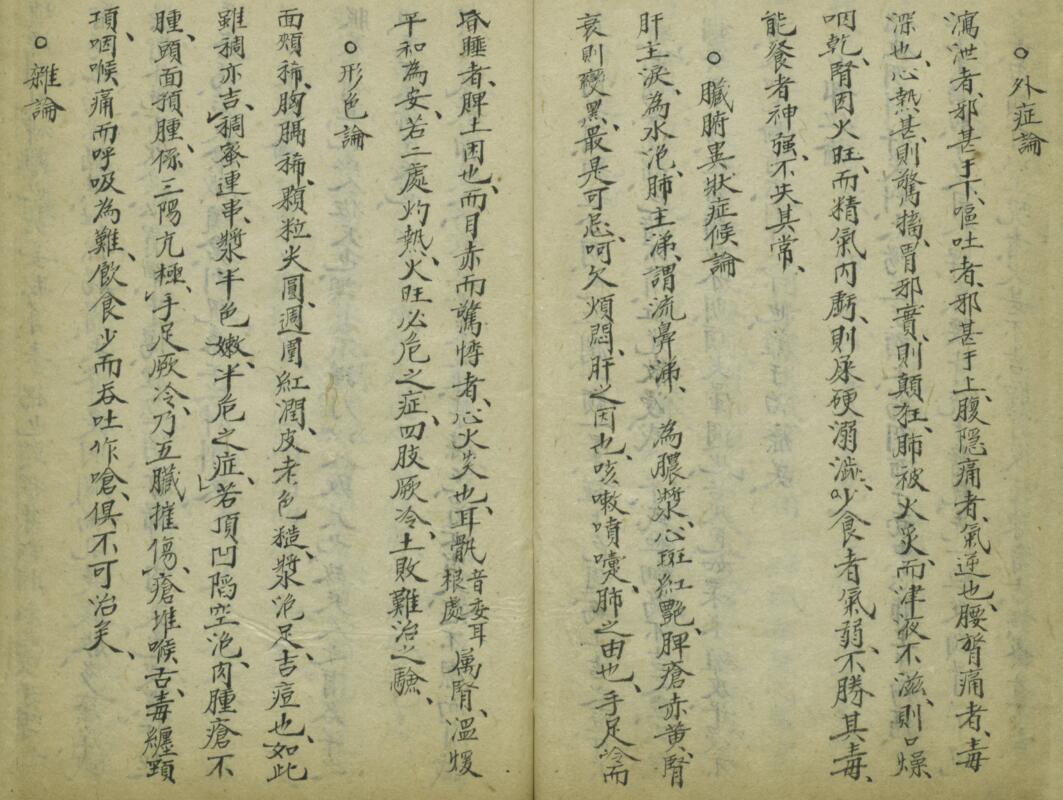 外症論
瀉泄者、邪甚于下、嘔吐者、邪甚于上、腹隱痛者、氣逆也、腰膂痛者、毒
深也、心熱甚則驚搐、胃邪實、則顛狂、肺被火炎、而津液不滋、則口燥
咽乾、腎因火旺、而精氣內虧、則尿硬溺澁、少食者氣弱、不勝其毒、
能餐者神强、不失其常、
臟腑異狀症候論
肝主淚、為水泡、肺主涕、謂流鼻涕、為膿漿、心斑紅艷、脾瘡赤黃、腎
衰則變黑、最是可忌、呵欠煩悶、肝之因也、咳嗽噴嚏、肺之由也、手足冷而
昏睡者、脾土因也、而目赤而驚悸者、心火炎也、耳骫音委耳根處属腎、溫煖
平和為安、若二處灼熱、火旺必危之症、四肢厥冷、土敗難治之驗、
形色論
面頰稀、胸膈稀、顆粒尖圓、週圍紅潤、皮老色𥻦、漿泡足、吉痘也、如此
雖稠亦吉、稠蜜連串、漿半色嫩、半危之症、若頂凹陷空泡、肉腫瘡不
腫、頭面預腫、係三陽亢極、手足厥冷、乃五臟摧傷、瘡堆喉舌、毒纏頸
項、咽喉痛而呼吸為難、飲食少而吞吐作嗆、俱不可治矣、
雜論